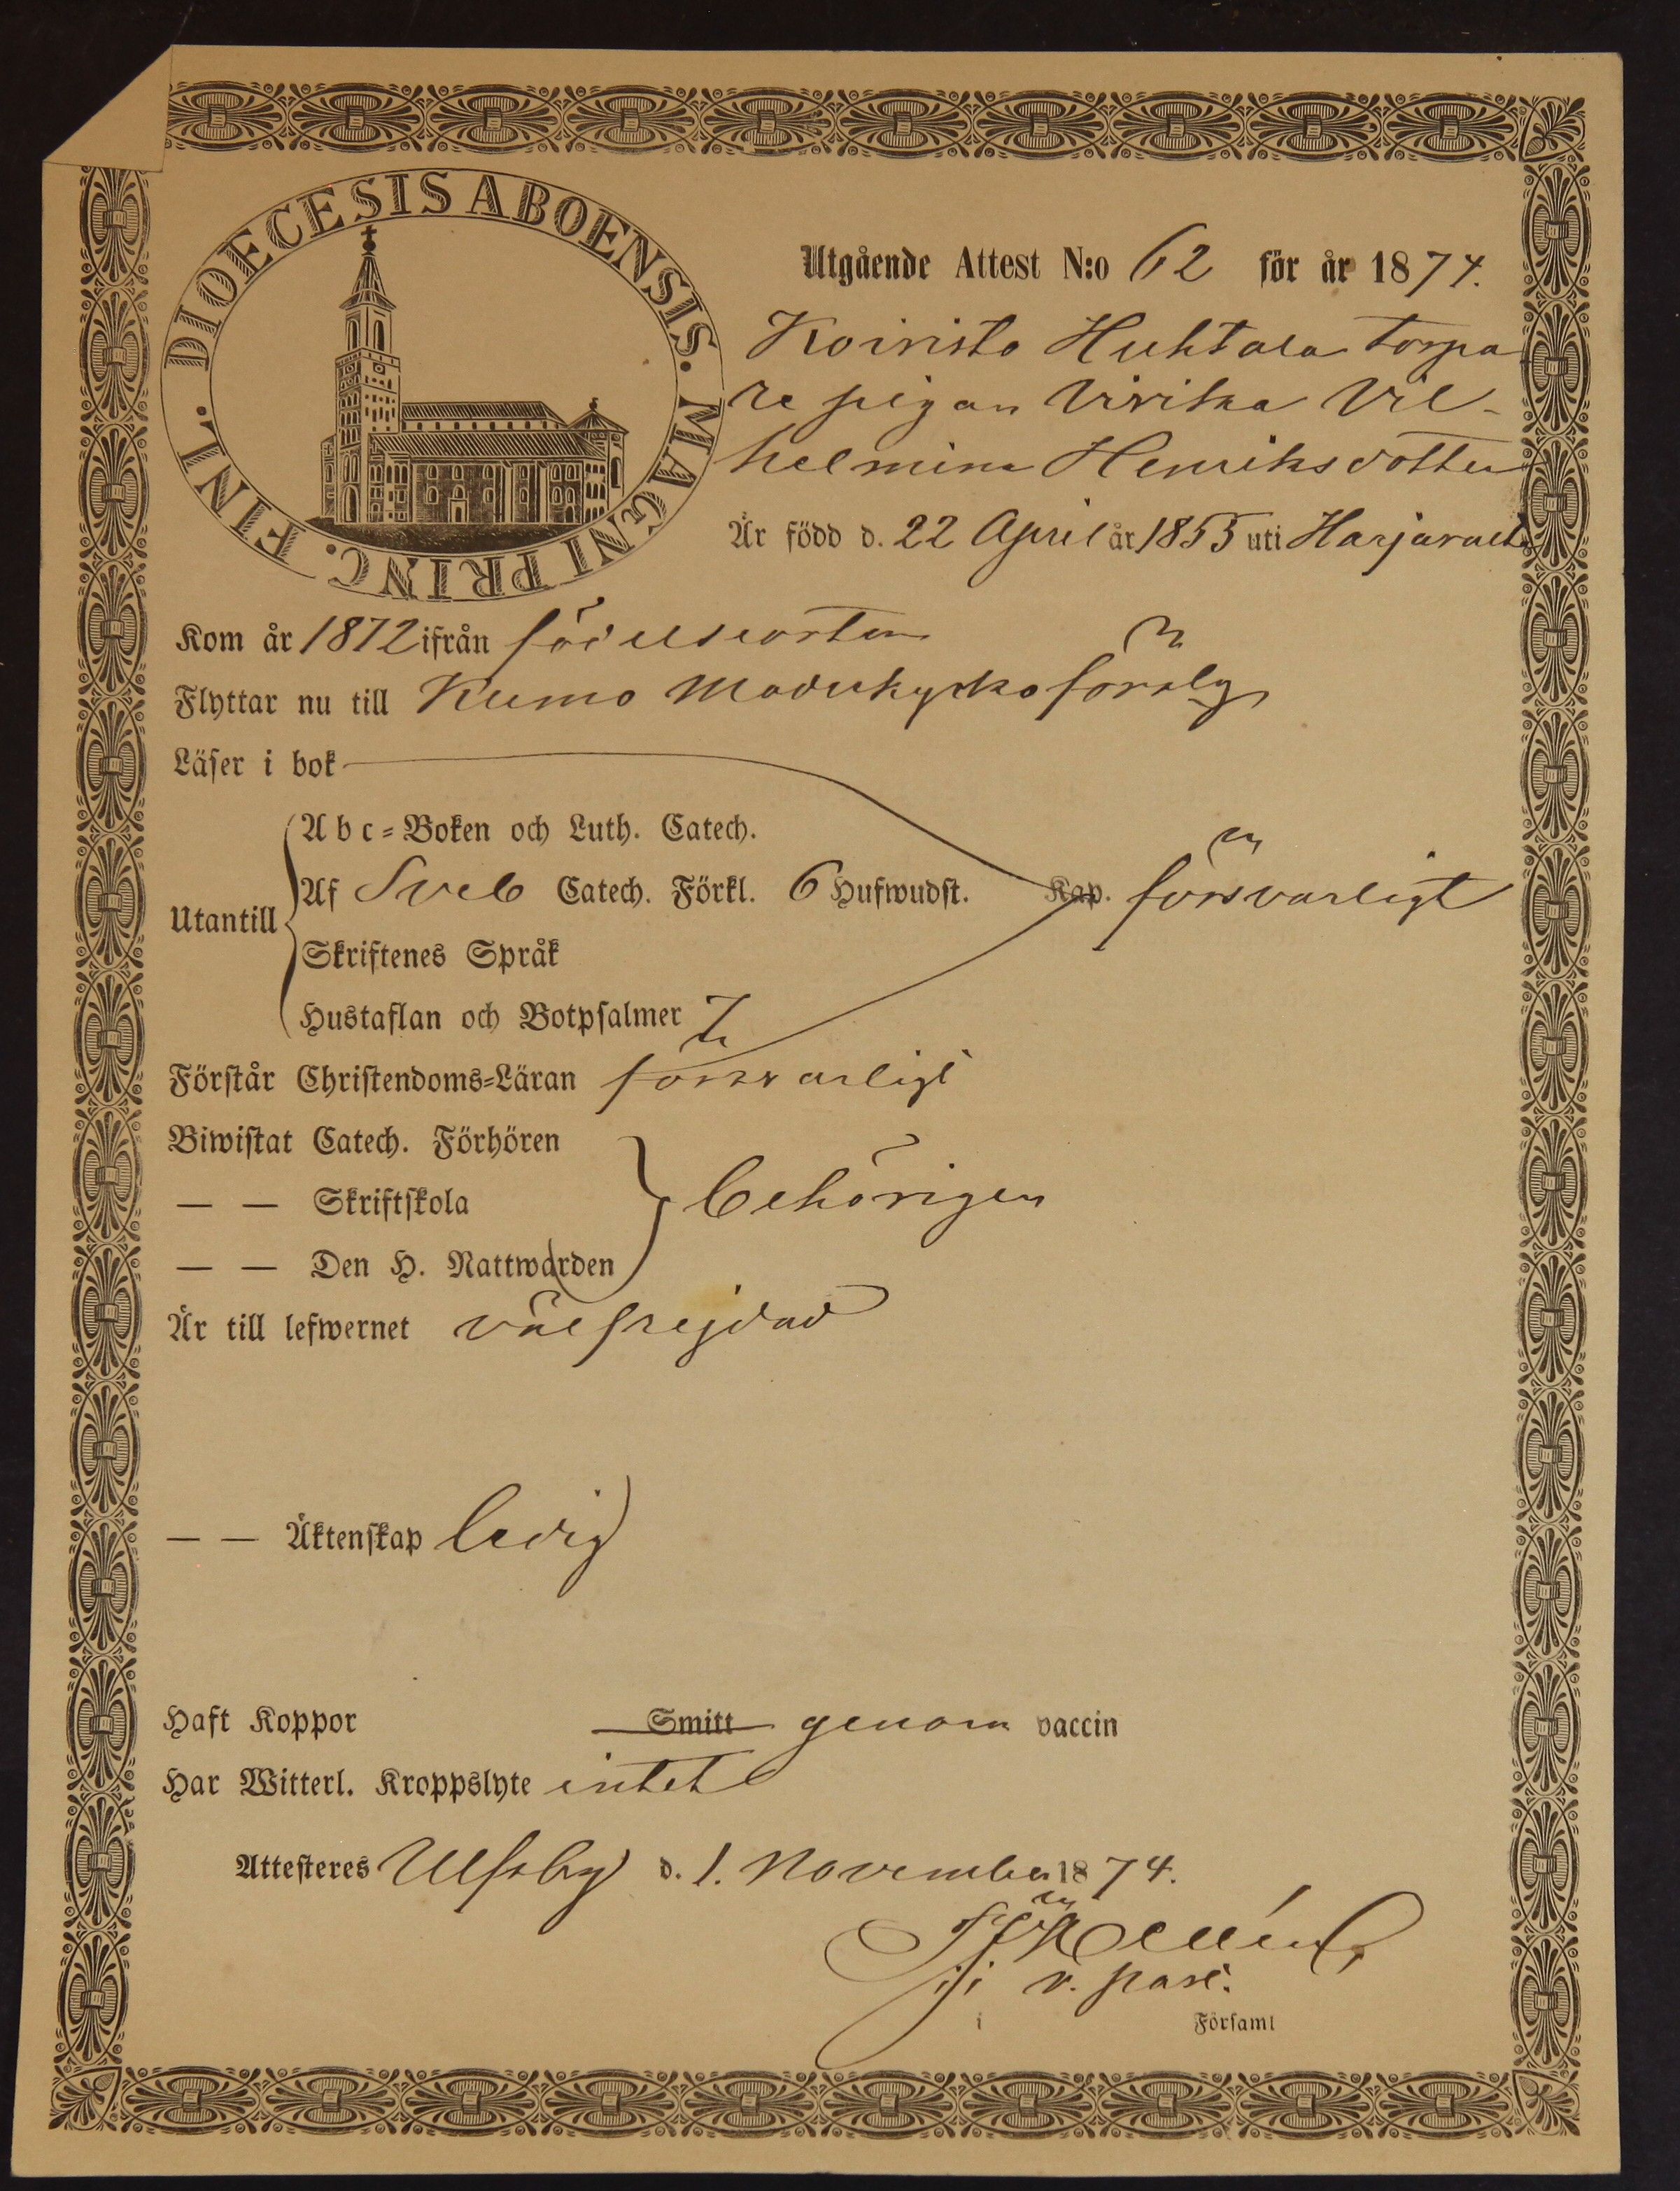 DIOECESIS ABOENSIS. MAGNI PRINC. FINL.
Utgående Attest N:o 62 för år 1874.
Koivisto Huhtala torpa
re pigan Vivika Vil-
helmina Henriksdotter
Är född d. 22 April år 1855 uti Harjavalta
Kom år 1872 ifrån födelseorten
Flyttar nu till Kumo Moderkyrkoförslg
Läser i bok
Utantill
Abc=Boken och Luth. Catech.
Af Sveb Catech. Förkl. 6 Hufwudst. Kap. försvarligt
Skriftenes Språk
Hustaflan och Botpsalmer 7
Förstår Christendoms=Läran försvarligt
Biwistat Catech. Förhören
— — Skriftskola behörigen
— — Den H. Nattwarden
Är till lefwernet välfrejdad
— — Äktenskap ledig
Haft Koppor Smitt genom vaccin
Har Witterl. Kroppslyte intet
Attesteres Ulfsby d. 1. November 1874.
v. past.
i Församl